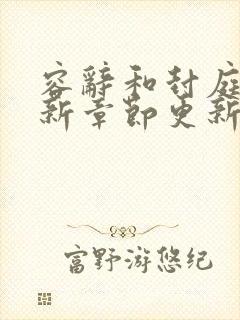 容辞和封庭
新章节更新
富野游悠纪